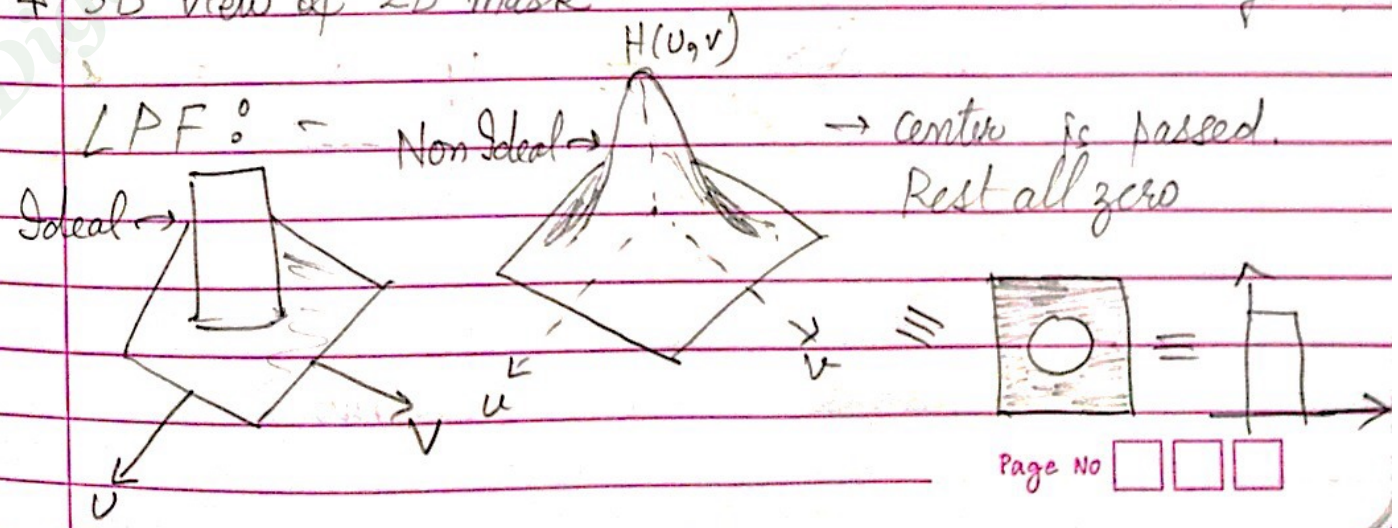 3D view of 2D mask
H(u,v)
LPF: -
Non Ideal →
→ center is passed.
Rest all zero
Ideal →
≡
=
u
v
u
V
Page No